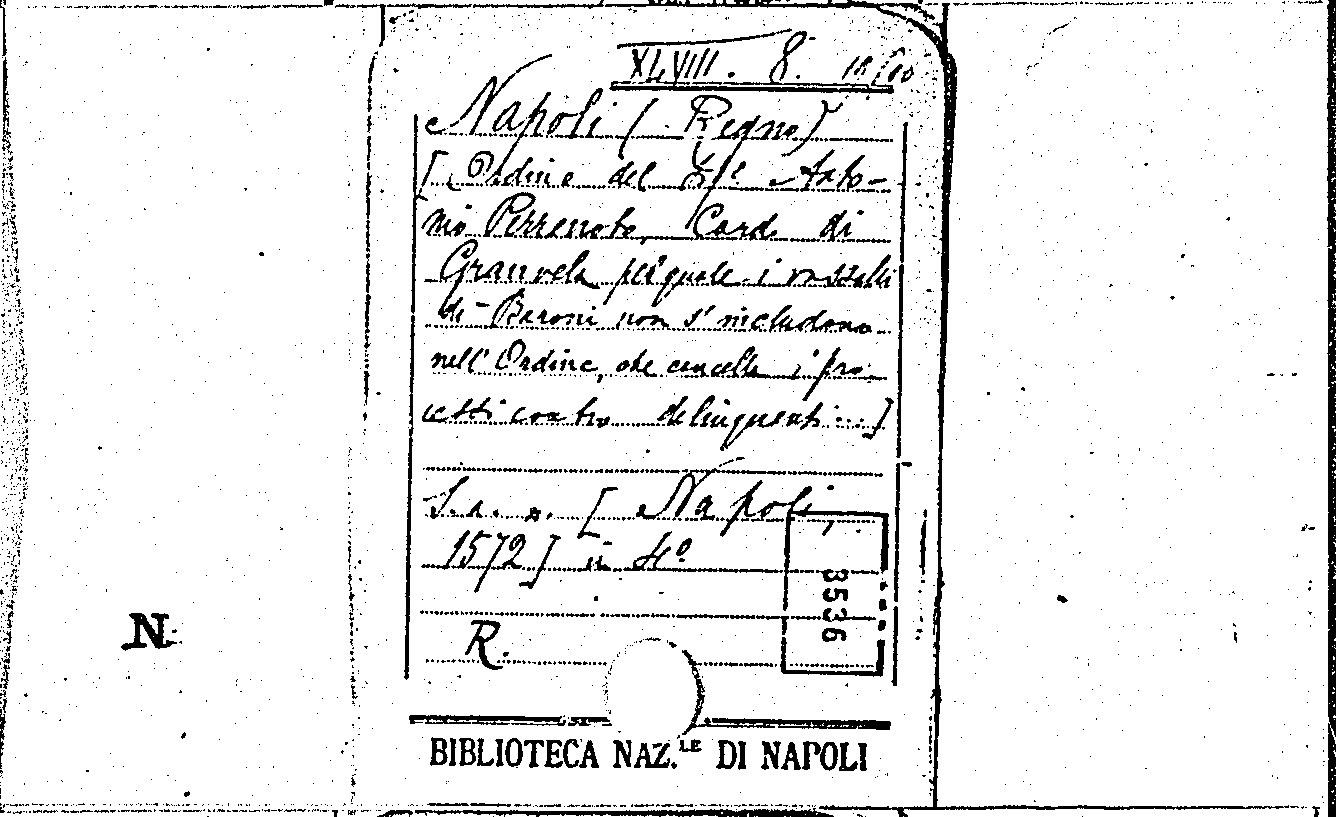 XLVIII. 8. 10/100
Napoli (Regno)
[Ordine del Anto-
nio Perrenoto, Card. di
Granvela pel quale i vassalli
di Baroni non s'includono
nell'Ordine, che cancella i pro-
cetti contro delinquenti...]
S. a. n. [Napoli,
1572] in 4º
3536
N
R.
BIBLIOTECA NAZ.LE DI NAPOLI